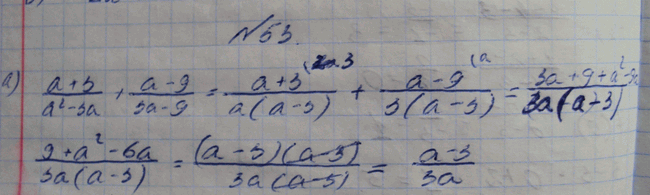 №53.
а) (a+3)/(a²-3a) + (a-9)/(3a-9) = (a+3)/(a(a-3)) + (a-9)/(3(a-3)) = (3a+9+a²-9a)/(3a(a-3))
(9+a²-6a)/(3a(a-3)) = ((a-3)(a-3))/(3a(a-3)) = (a-3)/(3a)